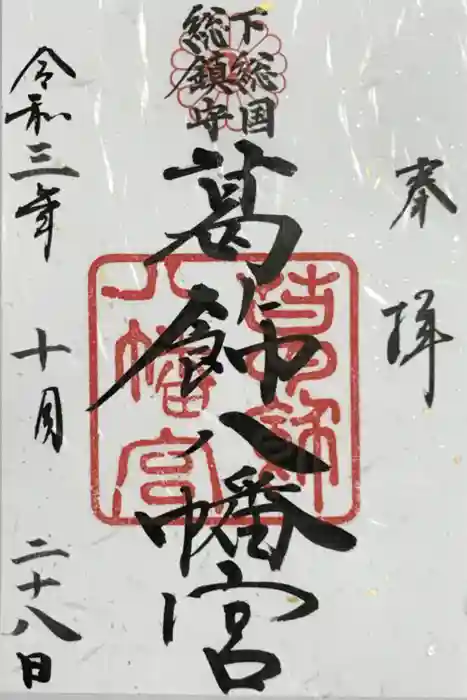 奉拝
下総国
総鎮守
葛飾八幡宮
葛飾
八幡宮
令和三年十月二十八日